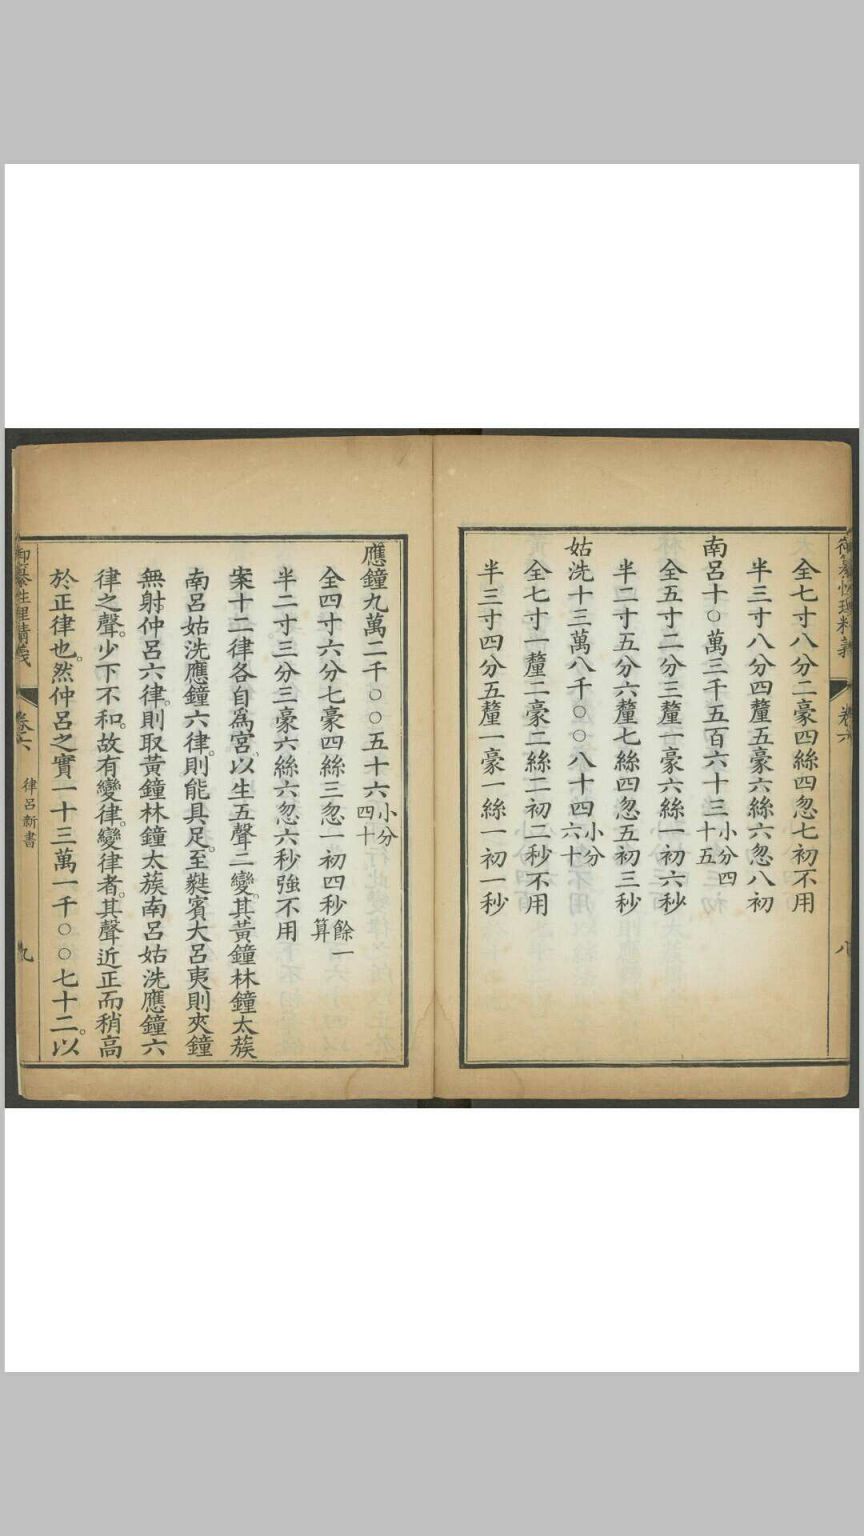 御纂性理精義
卷六
八
全七寸八分二豪四絲四忽七初不用
半三寸八分四釐五豪六絲六忽八初
南呂十〇萬三千五百六十三小分四十五
全五寸二分三釐一豪六絲一初六秒
半二寸五分六釐七絲四忽五初三秒
姑洗十三萬八千〇〇八十四小分六十
全七寸一釐二豪二絲二初二秒不用
半三寸四分五釐一豪一絲一初一秒
應鐘九萬二千〇〇五十六小分四十
全四寸六分七豪四絲三忽一初四秒餘一算
半二寸三分三豪六絲六忽六秒強不用
案十二律各自爲宮以生五聲二變。其黃鐘林鐘太蔟
南呂姑洗應鐘六律。則能具足。至蕤賓大呂夷則夾鐘
無射仲呂六律。則取黃鐘林鐘太蔟南呂姑洗應鐘六
律之聲。少下不和。故有變律。變律者。其聲近正而稍高
於正律也。然仲呂之實一十三萬一千〇〇七十二。以
御纂性理精義
卷六
律呂新書
九